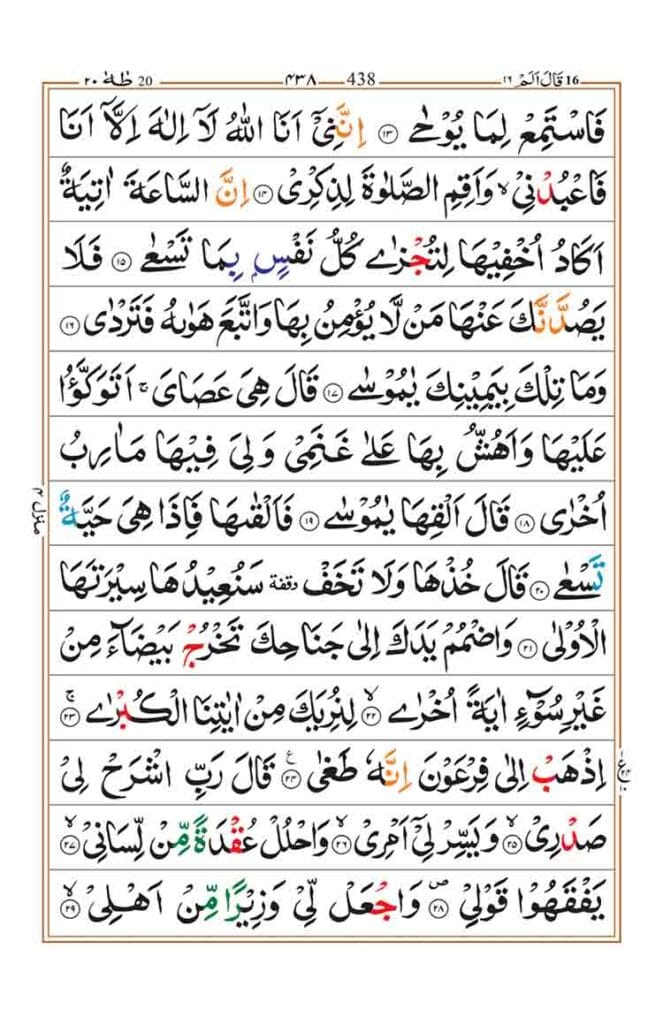 16 قَالَ اَلَمْ ١٦ 438 ٤٣٨ 20 طٰهٰ ٢٠
فَاسْتَمِعْ لِمَا يُوْحٰى ۝١٣ اِنَّنِيْۤ اَنَا اللّٰهُ لَاۤ اِلٰهَ اِلَّاۤ اَنَا
فَاعْبُدْنِيْ ۙ وَاَقِمِ الصَّلٰوةَ لِذِكْرِيْ ۝١٤ اِنَّ السَّاعَةَ اٰتِيَةٌ
اَكَادُ اُخْفِيْهَا لِتُجْزٰى كُلُّ نَفْسٍۭ بِمَا تَسْعٰى ۝١٥ فَلَا
يَصُدَّنَّكَ عَنْهَا مَنْ لَّا يُؤْمِنُ بِهَا وَاتَّبَعَ هَوٰىهُ فَتَرْدٰى ۝١٦
وَمَا تِلْكَ بِيَمِيْنِكَ يٰمُوْسٰى ۝١٧ قَالَ هِيَ عَصَايَ ۚ اَتَوَكَّؤُا
عَلَيْهَا وَاَهُشُّ بِهَا عَلٰى غَنَمِيْ وَلِيَ فِيْهَا مَاٰرِبُ
اُخْرٰى ۝١٨ قَالَ اَلْقِهَا يٰمُوْسٰى ۝١٩ فَاَلْقٰىهَا فَاِذَا هِيَ حَيَّةٌ
تَسْعٰى ۝٢٠ قَالَ خُذْهَا وَلَا تَخَفْ وقفة سَنُعِيْدُهَا سِيْرَتَهَا
الْاُوْلٰى ۝٢١ وَاضْمُمْ يَدَكَ اِلٰى جَنَاحِكَ تَخْرُجْ بَيْضَآءَ مِنْ
غَيْرِ سُوْٓءٍ اٰيَةً اُخْرٰى ۝٢٢ ۙ لِنُرِيَكَ مِنْ اٰيٰتِنَا الْكُبْرٰى ۝٢٣ ۚ
اِذْهَبْ اِلٰى فِرْعَوْنَ اِنَّهٗ طَغٰى ۝٢٤ ع قَالَ رَبِّ اشْرَحْ لِيْ
صَدْرِيْ ۝٢٥ ۙ وَيَسِّرْ لِيْۤ اَمْرِيْ ۝٢٦ ۙ وَاحْلُلْ عُقْدَةً مِّنْ لِّسَانِيْ ۝٢٧ ۙ
يَفْقَهُوْا قَوْلِيْ ۝٢٨ ۪ وَاجْعَلْ لِّيْ وَزِيْرًا مِّنْ اَهْلِيْ ۝٢٩ ۙ
منزل ٤